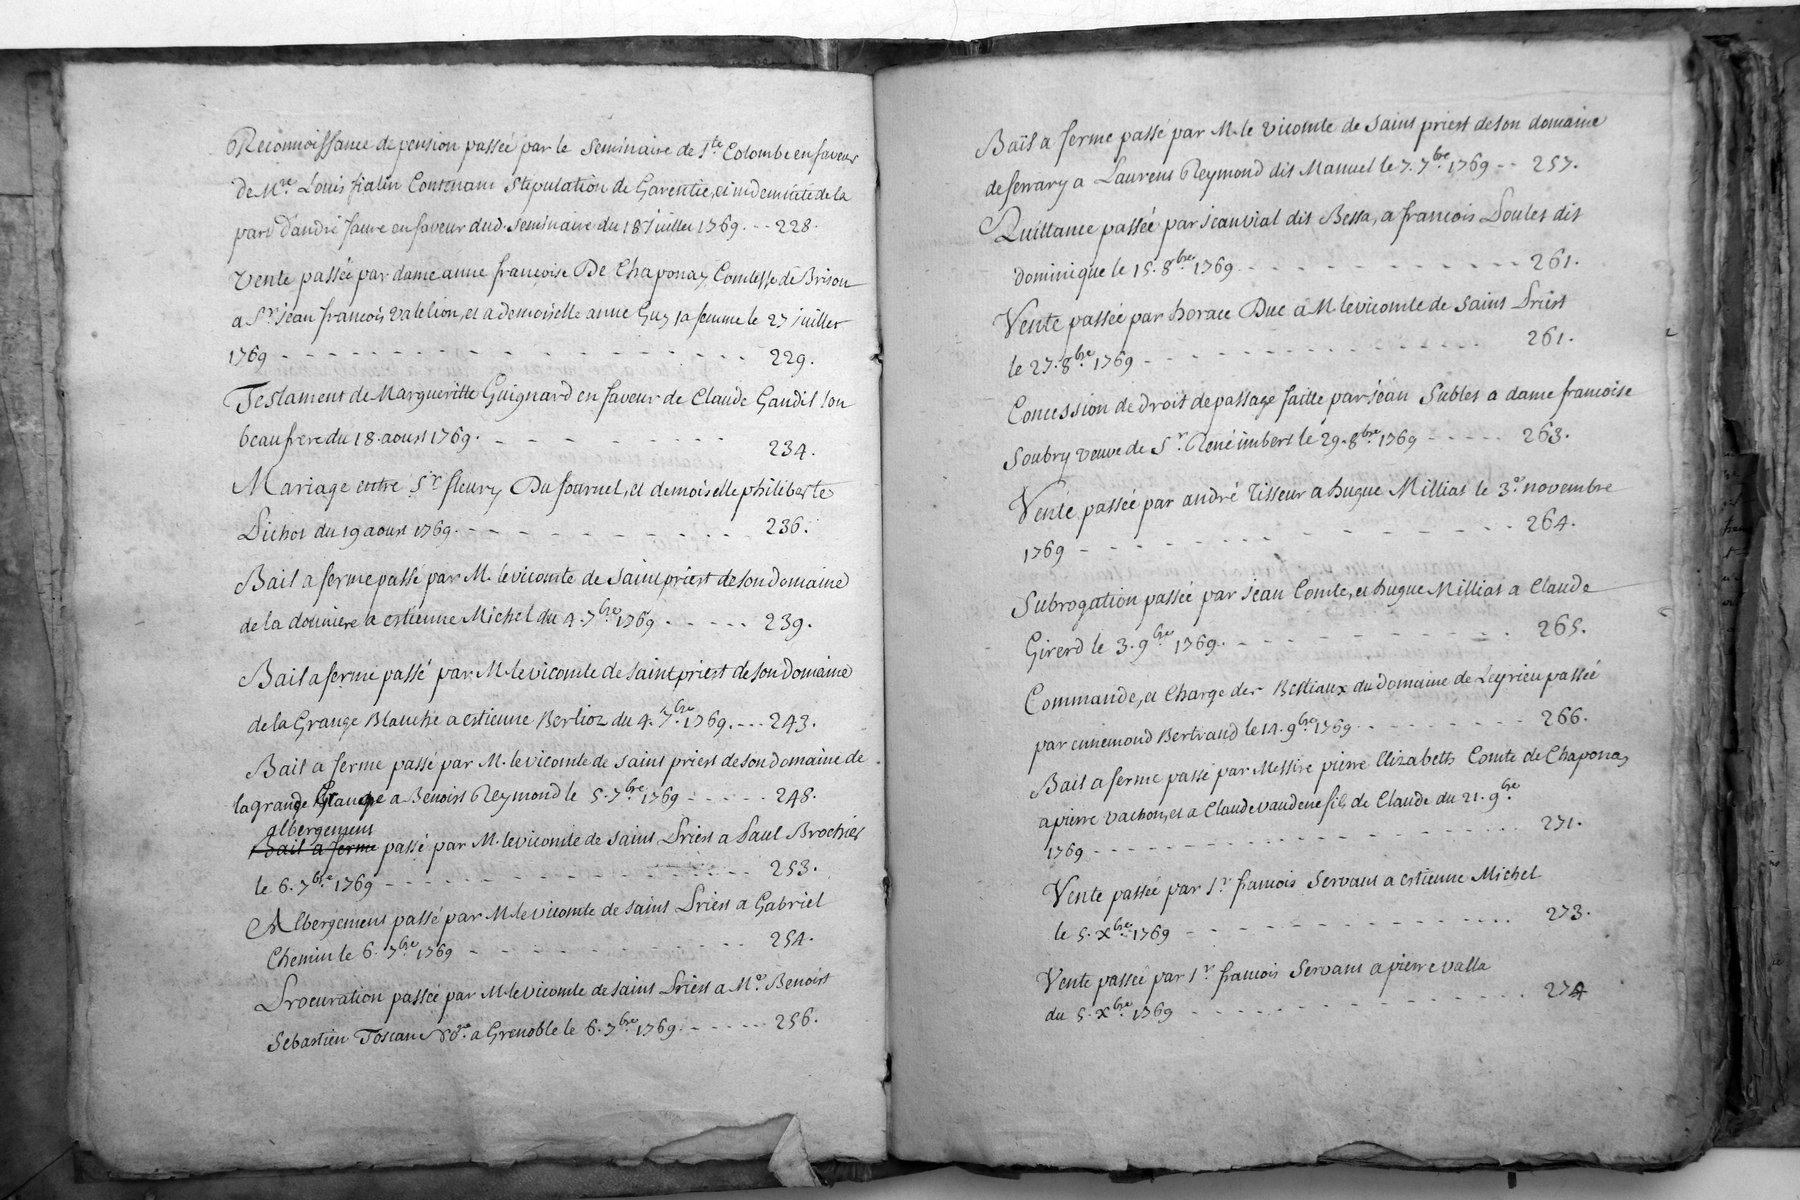 Reconnoissance de pension passée par le Seminaire de Ste Colombe en faveur
de Mre Louis fialin Contenant Stipulation de Garentie, et indemnité de la
part d'andré faure en faveur dud. Seminaire du 18 juillet 1769. -- 228.
Vente passée par dame anne françoise De Chaponay Comtesse de Brison
a Sr jean francois Valelion, et a demoiselle anne Guy sa femme le 27 juillet
1769 - - - - - - - - - - - - - - - - 229.
Testament de Margueritte Guignard en faveur de Claude Gandil son
beaufrere du 18. aoust 1769. - - - - - - - - - 234.
Mariage entre Sr fleury Du fournel, et demoiselle philiberte
Pichot du 19 aoust 1769. - - - - - - - - - - - 236.
Bail a ferme passé par M. le vicomte de Saint priest de son domaine
de la a estienne Michel du 4. 7bre 1769 - - - - - 239.
Bail a ferme passé par M. le vicomte de Saint priest de son Domaine
de la Grange Blanche a estienne Berlioz du 4. 7bre 1769. - - - 243.
Bail a ferme passé par M. le vicomte de Saint priest de son Domaine de
la grande Grange a Benoist Reymond le 5. 7bre 1769 - - - - - 248.
albergement
Bail a ferme passé par M. le vicomte de Saint Priest a Paul Brochier
le 6. 7bre 1769 - - - - - - - - - - - - - 253.
Albergement passé par M. le vicomte de Saint Priest a Gabriel
Chemin le 6. 7bre 1769 - - - - - - - - - - 254.
Procuration passée par M. le vicomte de Saint Priest a Me. Benoist
Sebastien Toscan a Grenoble le 6. 7bre 1769. - - - - - 256.
Bail a ferme passé par M. le vicomte de Saint priest de son domaine
de ferrary a Laurent Reymond dit Manuel le 7. 7bre 1769 -- 257.
Quittance passée par jean vial dit Bessa, a francois Poulet dit
dominique le 15. 8bre 1769 - - - - - - - - - - - 261.
Vente passée par horace Duc a M. le vicomte de Saint Priest
le 27. 8bre 1769 - - - - - - - - - - - - - 261.
Concession de droit de passage faitte par jean Sublet a dame francoise
Soubry veuve de Sr. René imbert le 29. 8bre 1769 - - - - - 263.
Vente passée par andré Tisseur a hugue Milliat le 3e novembre
1769 - - - - - - - - - - - - - - - 264.
Subrogation passée par jean Comte, et hugue Milliat a Claude
Girerd le 3. 9bre 1769. - - - - - - - - - - 265.
Commande, et Charge des Bestiaux du Domaine de Leyrieu passée
par ennemond Bertrand le 14. 9bre 1769 - - - - - - - - 266.
Bail a ferme passé par Messire pierre Elizabeth Comte de Chaponay
a pierre vachon, et a Claude vaudene fils de Claude du 21. 9bre
1769 - - - - - - - - - - - - - - - 271.
Vente passée par Sr francois Servant a estienne Michel
le 5. Xbre 1769 - - - - - - - - - - - - 273.
Vente passée par Sr francois Servant a pierre valla
du 5. Xbre 1769 - - - - - - - - - - - - 274